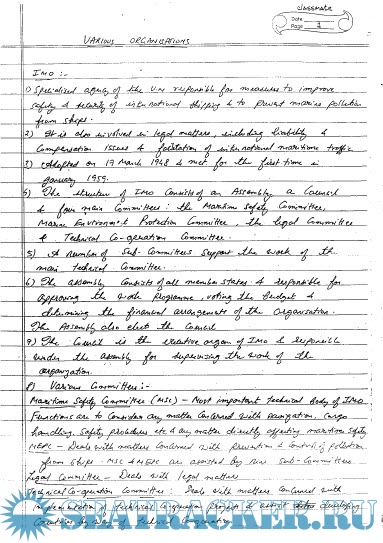 classmate
Date
Page 1
VARIOUS ORGANISATIONS
IMO :-
1) Specialized agency of the U.N responsible for measures to improve
safety & security of international shipping & to prevent marine pollution
from ships.
2) It is also involved in legal matters, including liability &
compensation issues & facilitation of international maritime traffic
3) Adopted on 17 March 1948 & met for the first time in
January 1959.
The structure of IMO consists of an Assembly, a Council
& four main Committees: the Maritime Safety Committee,
Marine Environment Protection Committee, the legal Committee
& Technical Co-operation Committee.
5) A number of Sub-Committees support the work of the
main technical Committee.
6) The assembly consists of all member states & responsible for
approving the work Programme, voting the budget &
determining the financial arrangements of the Organisation.
The Assembly also elects the Council
7) The Council is the executive organ of IMO & responsible
under the assembly for supervising the work of the
organization.
Various Committees :-
Maritime Safety Committee (MSC) - Most important technical body of IMO
Functions are to consider any matter concerned with navigation, cargo
handling, Safety procedures etc & any matter directly affecting maritime safety
MEPC - Deals with matters concerned with prevention & control of pollution
from ships - MSC & MEPC are assisted by nine sub-committees
Legal Committee - Deals with legal matters
Technical Co-operation Committee: Deals with matters concerned with
implementation of technical Co-operation projects & assist developing
countries